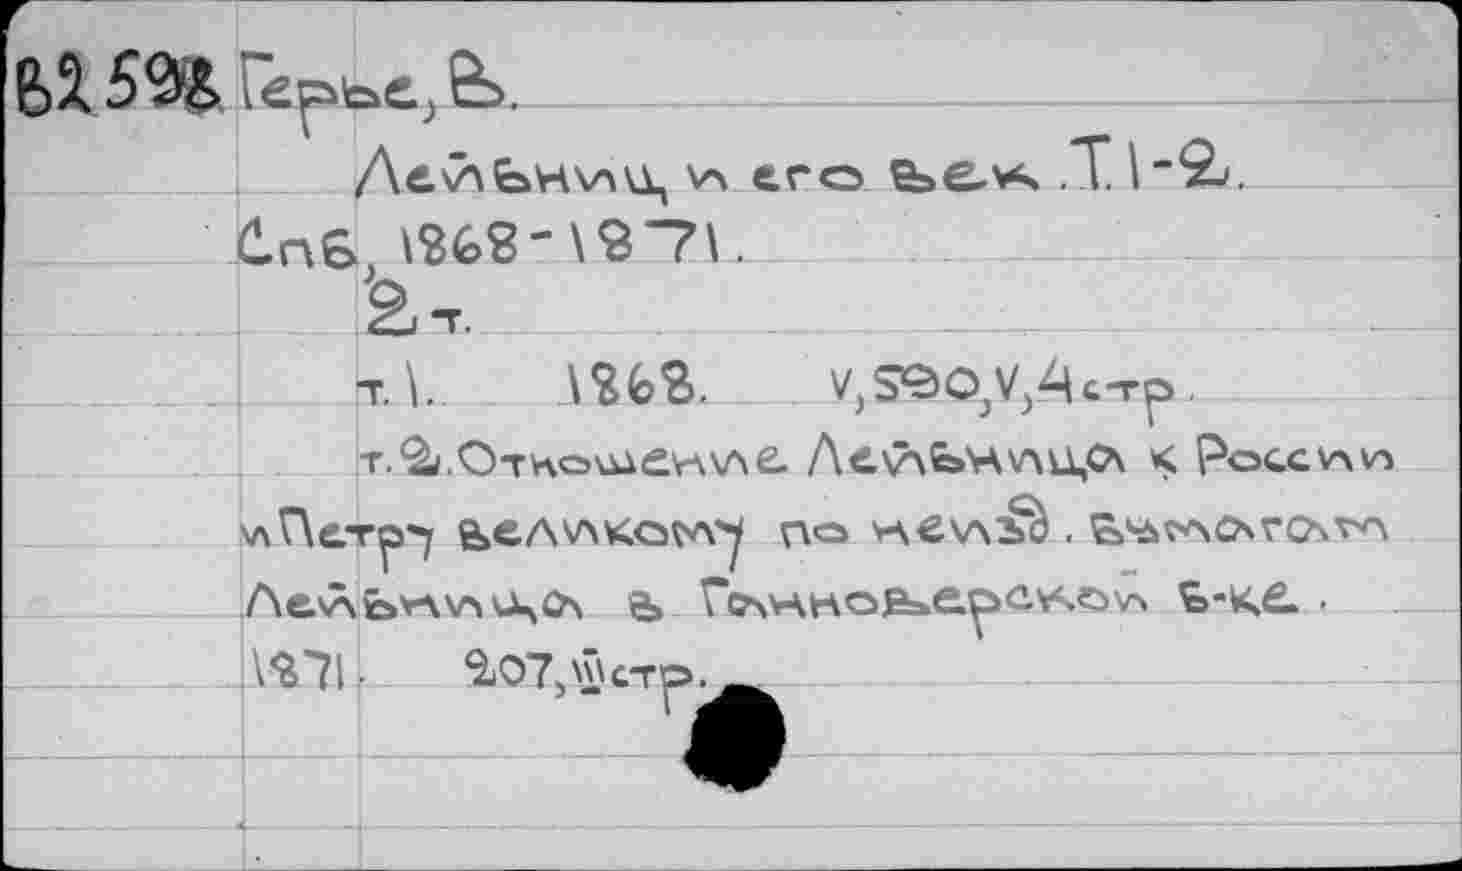 В2598 Герье, В.
Лейбниц и его век. Т.1-2.
Спб, 1868-1871.
2 т.
т.1. 1868. V, 590, V, 4 стр.
т.2. Отношение Лейбница к России
и Петру Великому по неизд. бумагам
Лейбница в Ганноверской б-ке.
1871. 207, III стр.